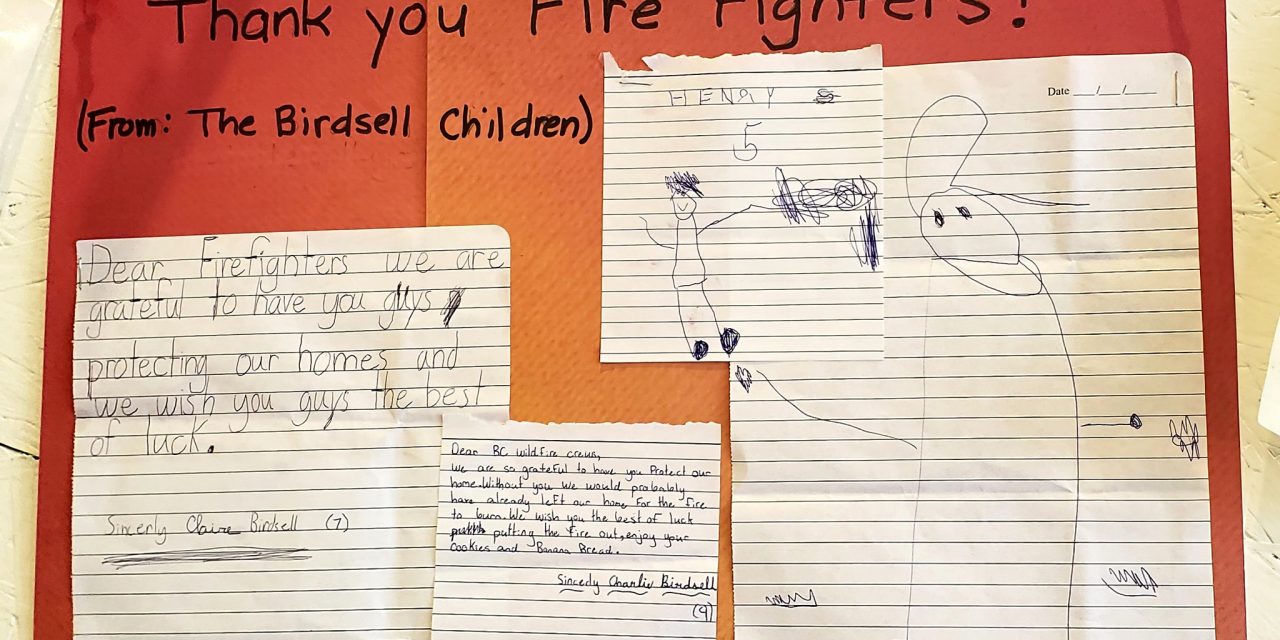 Thank you Fire Fighters!
(From: The Birdsell Children)
Dear Firefighters we are
grateful to have you guys
protecting our homes and
we wish you guys the best
of luck.
Sincerly Claire Birdsell (7)
Dear BC wildfire crews,
we are so grateful to have you Protect our
home. Without you we would probably
have already left our home for the fire
to burn. We wish you the best of luck
putting the fire out, enjoy your
cookies and Banana Bread.
Sincerly Charlie Birdsell
(9)
HENRY
5
Date / /